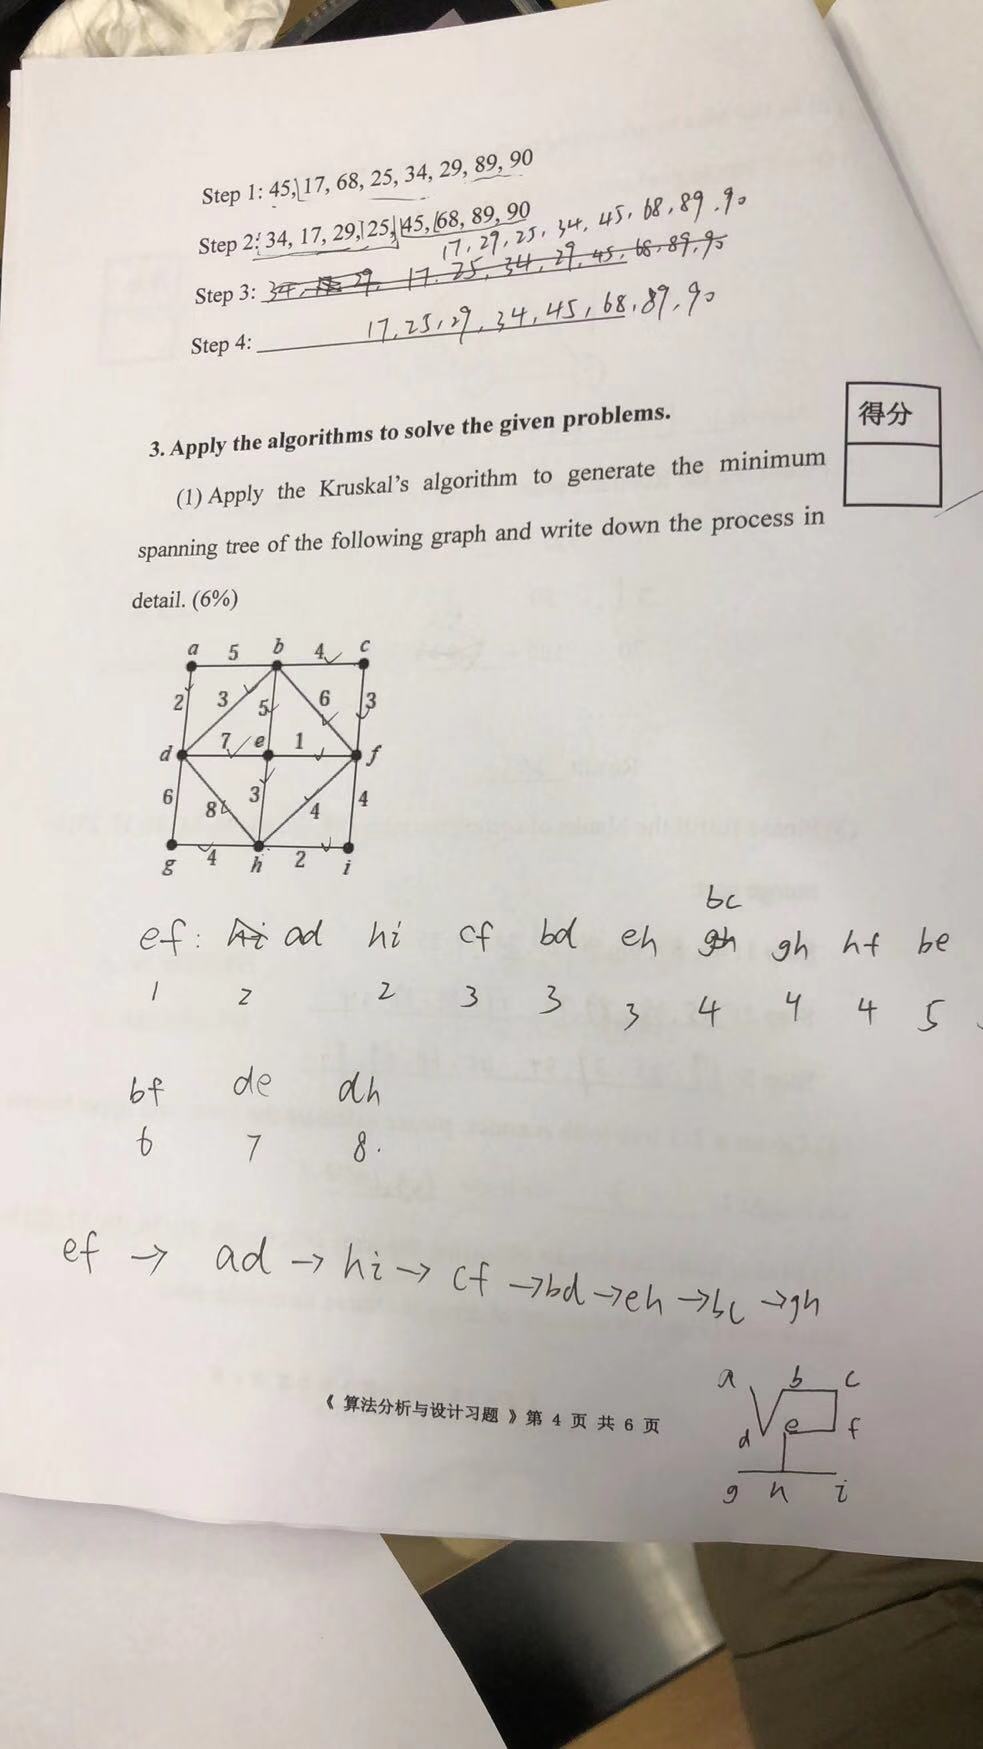 Step 1: 45, 17, 68, 25, 34, 29, 89, 90
Step 2: 34, 17, 29, 25, 45, 68, 89, 90
17, 29, 25, 34, 45, 68, 89, 90
Step 3: 34, 29, 17, 25, 34, 29, 45, 68, 89, 90
Step 4: 17, 25, 29, 34, 45, 68, 89, 90
得分
3. Apply the algorithms to solve the given problems.
(1) Apply the Kruskal's algorithm to generate the minimum
spanning tree of the following graph and write down the process in
detail. (6%)
a 5 b 4 c
2 3 5 6 3
d 7 e 1 f
6 8 3 4 4
g 4 h 2 i
bc
ef: hi ad hi cf bd eh gh gh hf be
1 2 2 3 3 3 4 4 4 5
bf de dh
6 7 8.
ef → ad → hi → cf → bd → eh → bc → gh
a b c
d e f
g h i
《 算法分析与设计习题 》第 4 页 共 6 页